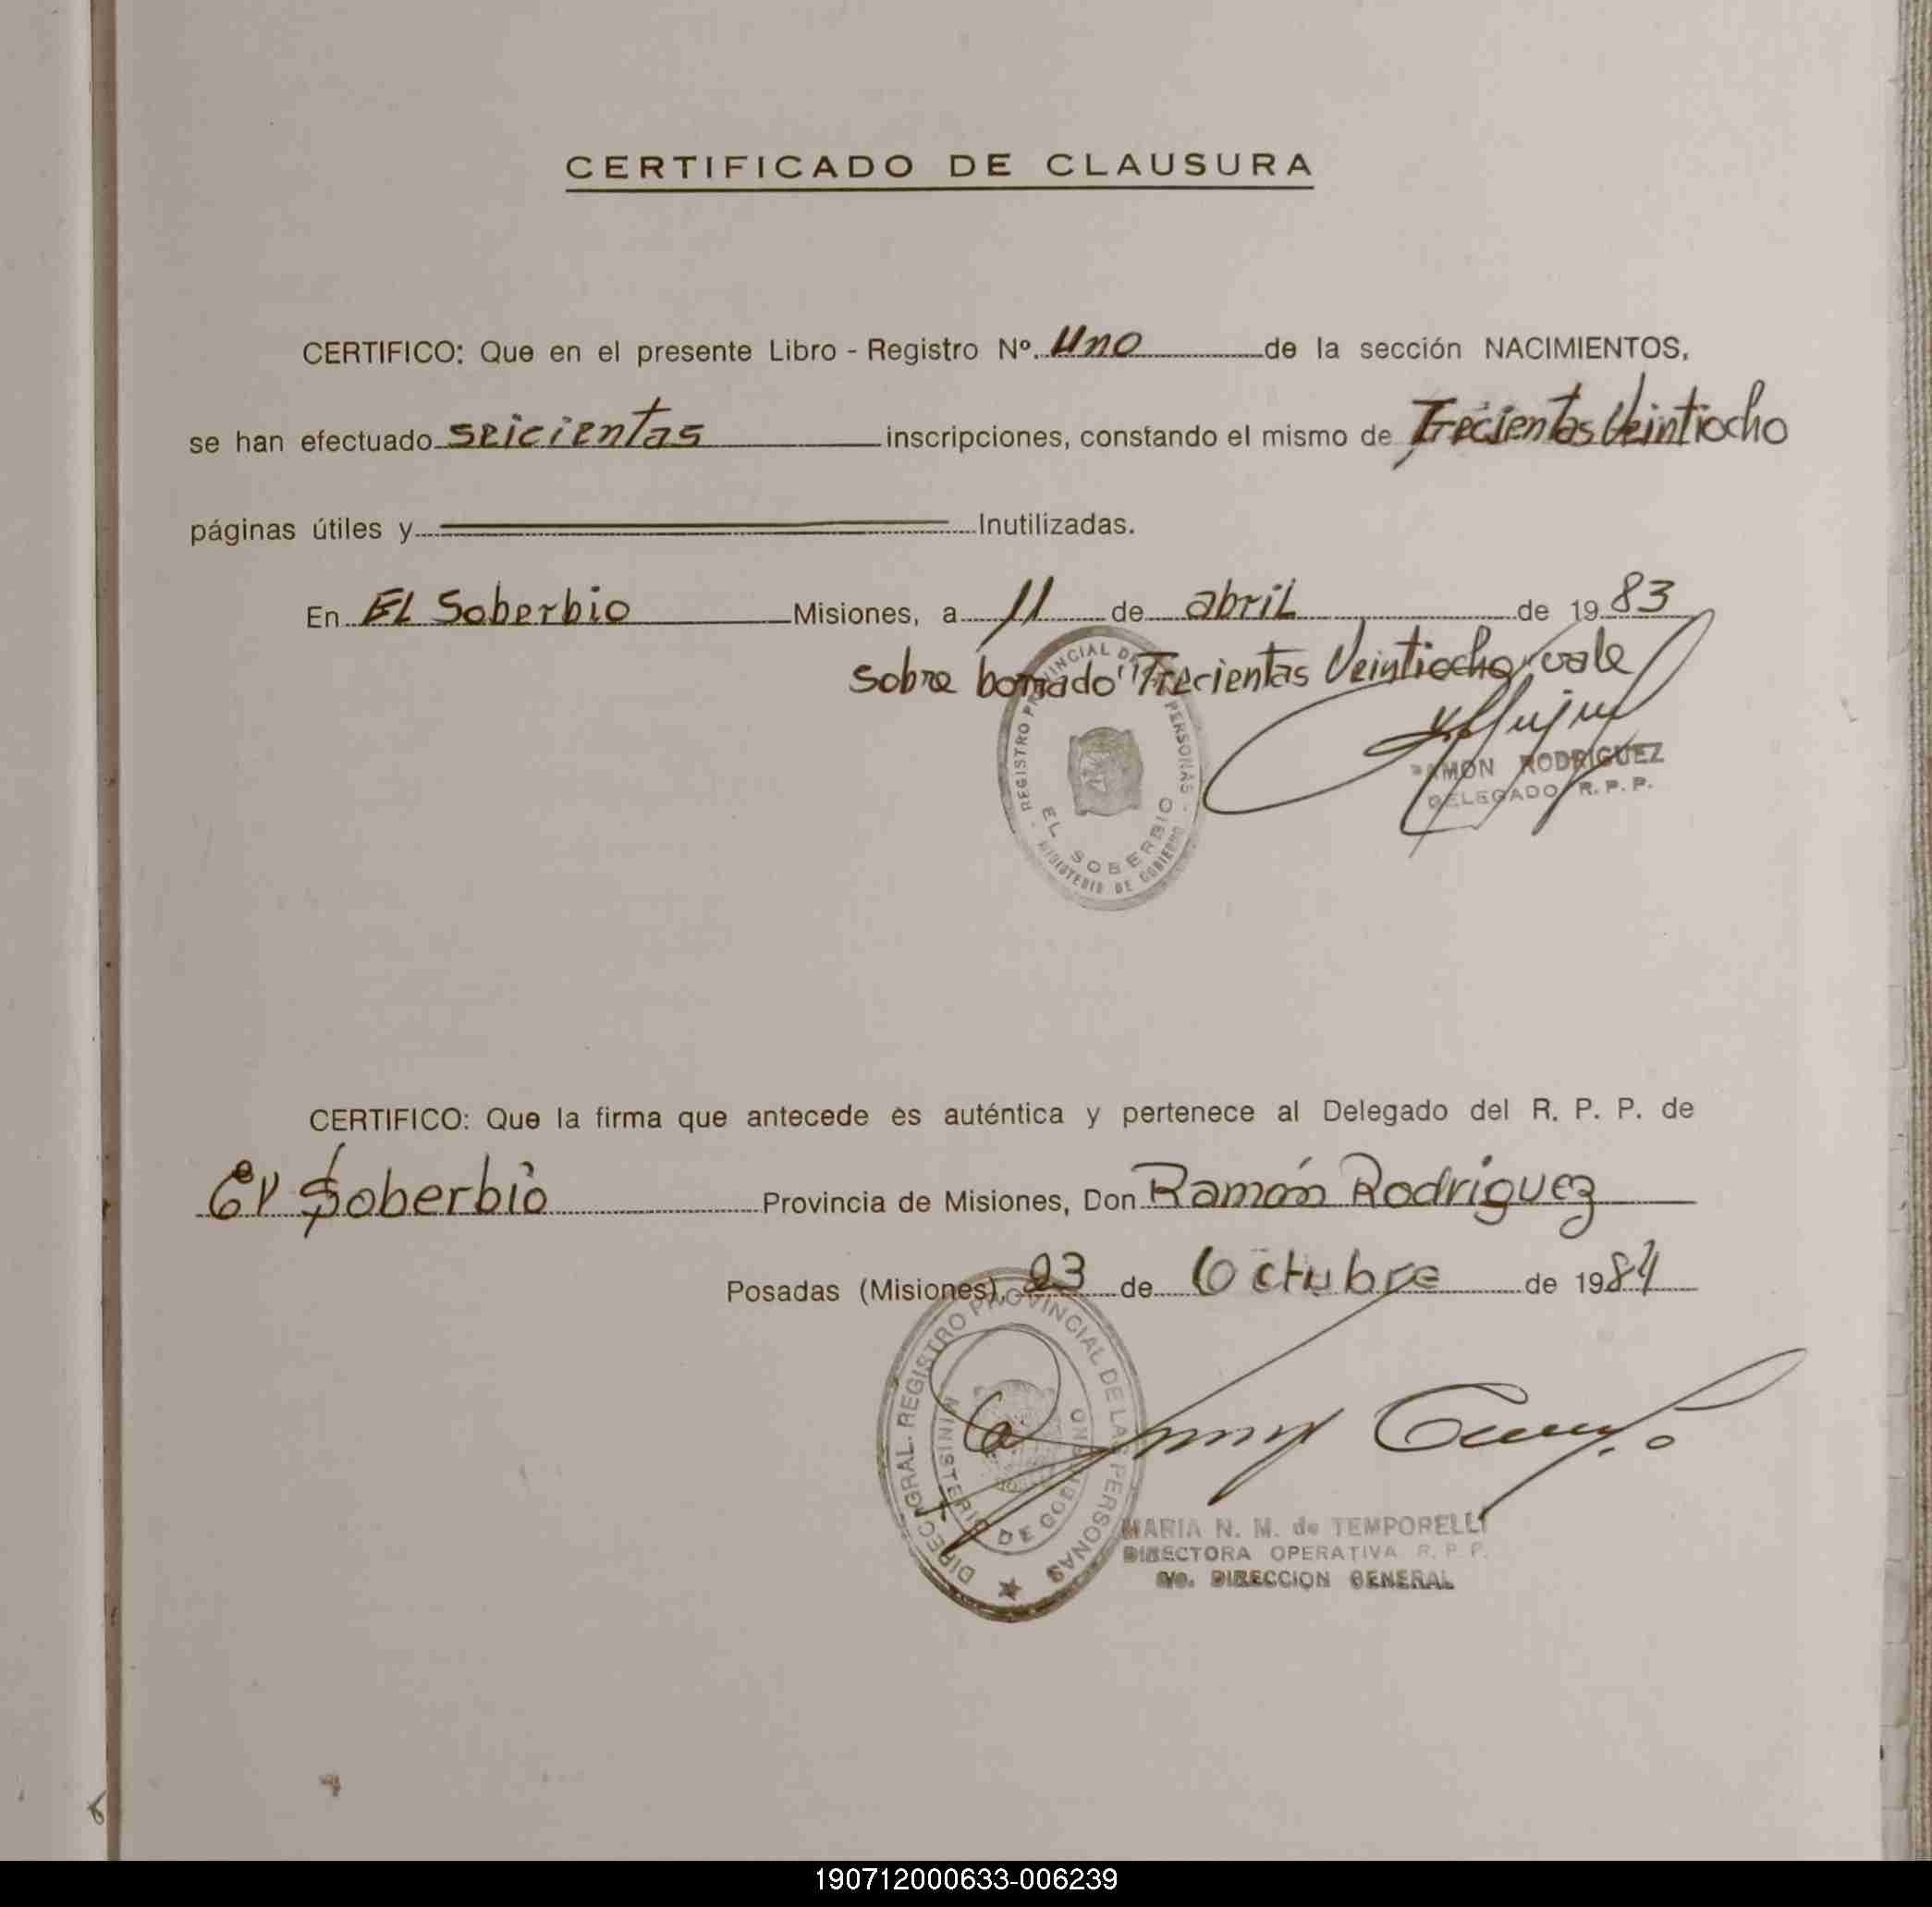 CERTIFICADO DE CLAUSURA
CERTIFICO: Que en el presente Libro - Registro Nº. Uno de la sección NACIMIENTOS,
se han efectuado seicientas inscripciones, constando el mismo de Trecientas Veintiocho
páginas útiles y Inutilizadas.
En EL Soberbio Misiones, a 11 de abril de 1983
sobre borrado "Trecientas Veintiocho" vale
REGISTRO PROVINCIAL DE LAS PERSONAS - MINISTERIO DE GOBIERNO -
EL SOBERBIO
RAMON RODRIGUEZ
DELEGADO R. P. P.
CERTIFICO: Que la firma que antecede es auténtica y pertenece al Delegado del R. P. P. de
El Soberbio Provincia de Misiones, Don Ramón Rodriguez
Posadas (Misiones), 23 de Octubre de 1984
DIREC. GRAL. REGISTRO PROVINCIAL DE LAS PERSONAS
MINISTERIO DE GOBIERNO
MARIA N. M. de TEMPORELLI
DIRECTORA OPERATIVA R. P. P.
DIRECCION GENERAL
190712000633-006239